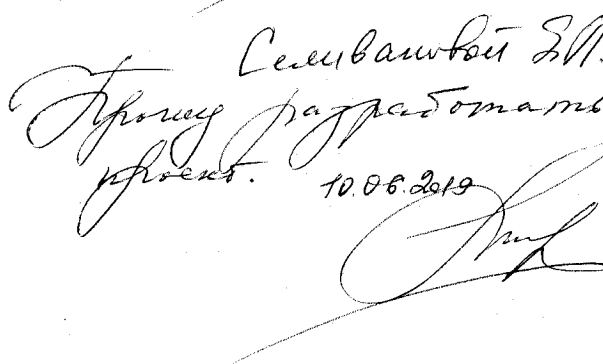 Селивановой Е.П.
Прошу разработать
проект. 10.06.2019